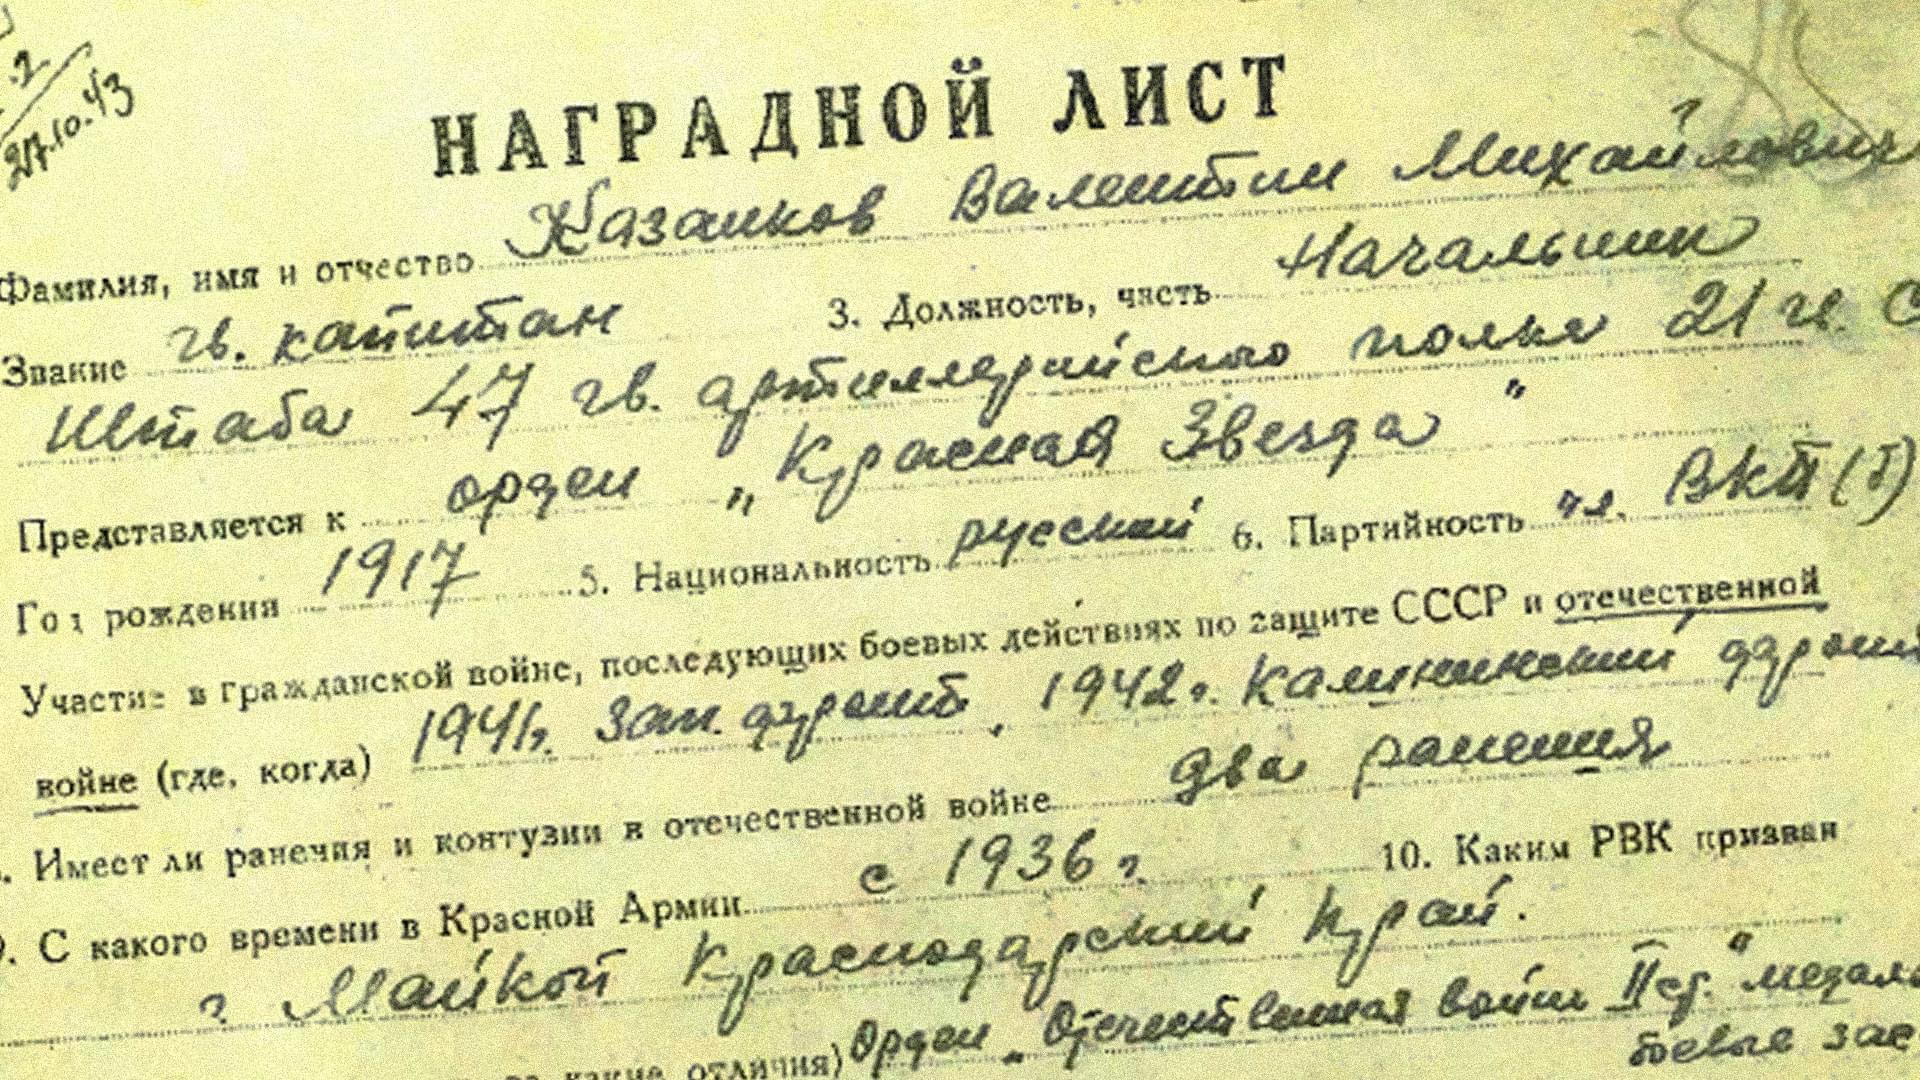 27.10.43
НАГРАДНОЙ ЛИСТ
Фамилия, имя и отчество Казанков Валентин Михайлович
Звание гв. капитан 3. Должность, часть Начальник
Штаба 47 гв. артиллерийского полка 21 гв. С
Представляется к орден „Красная Звезда"
Год рождения 1917 5. Национальность русский 6. Партийность чл. ВКП(б)
Участие в гражданской войне, последующих боевых действиях по защите СССР и отечественной
войне (где, когда) 1941г. Зап. фронт, 1942г. Калининский фронт
Имеет ли ранения и контузии в отечественной войне два ранения
9. С какого времени в Красной Армии с 1936 г. 10. Каким РВК призван
г. Майкоп Краснодарский Край.
какие отличия) Орден „Отечественная войны II ст." медаль
боевые зас